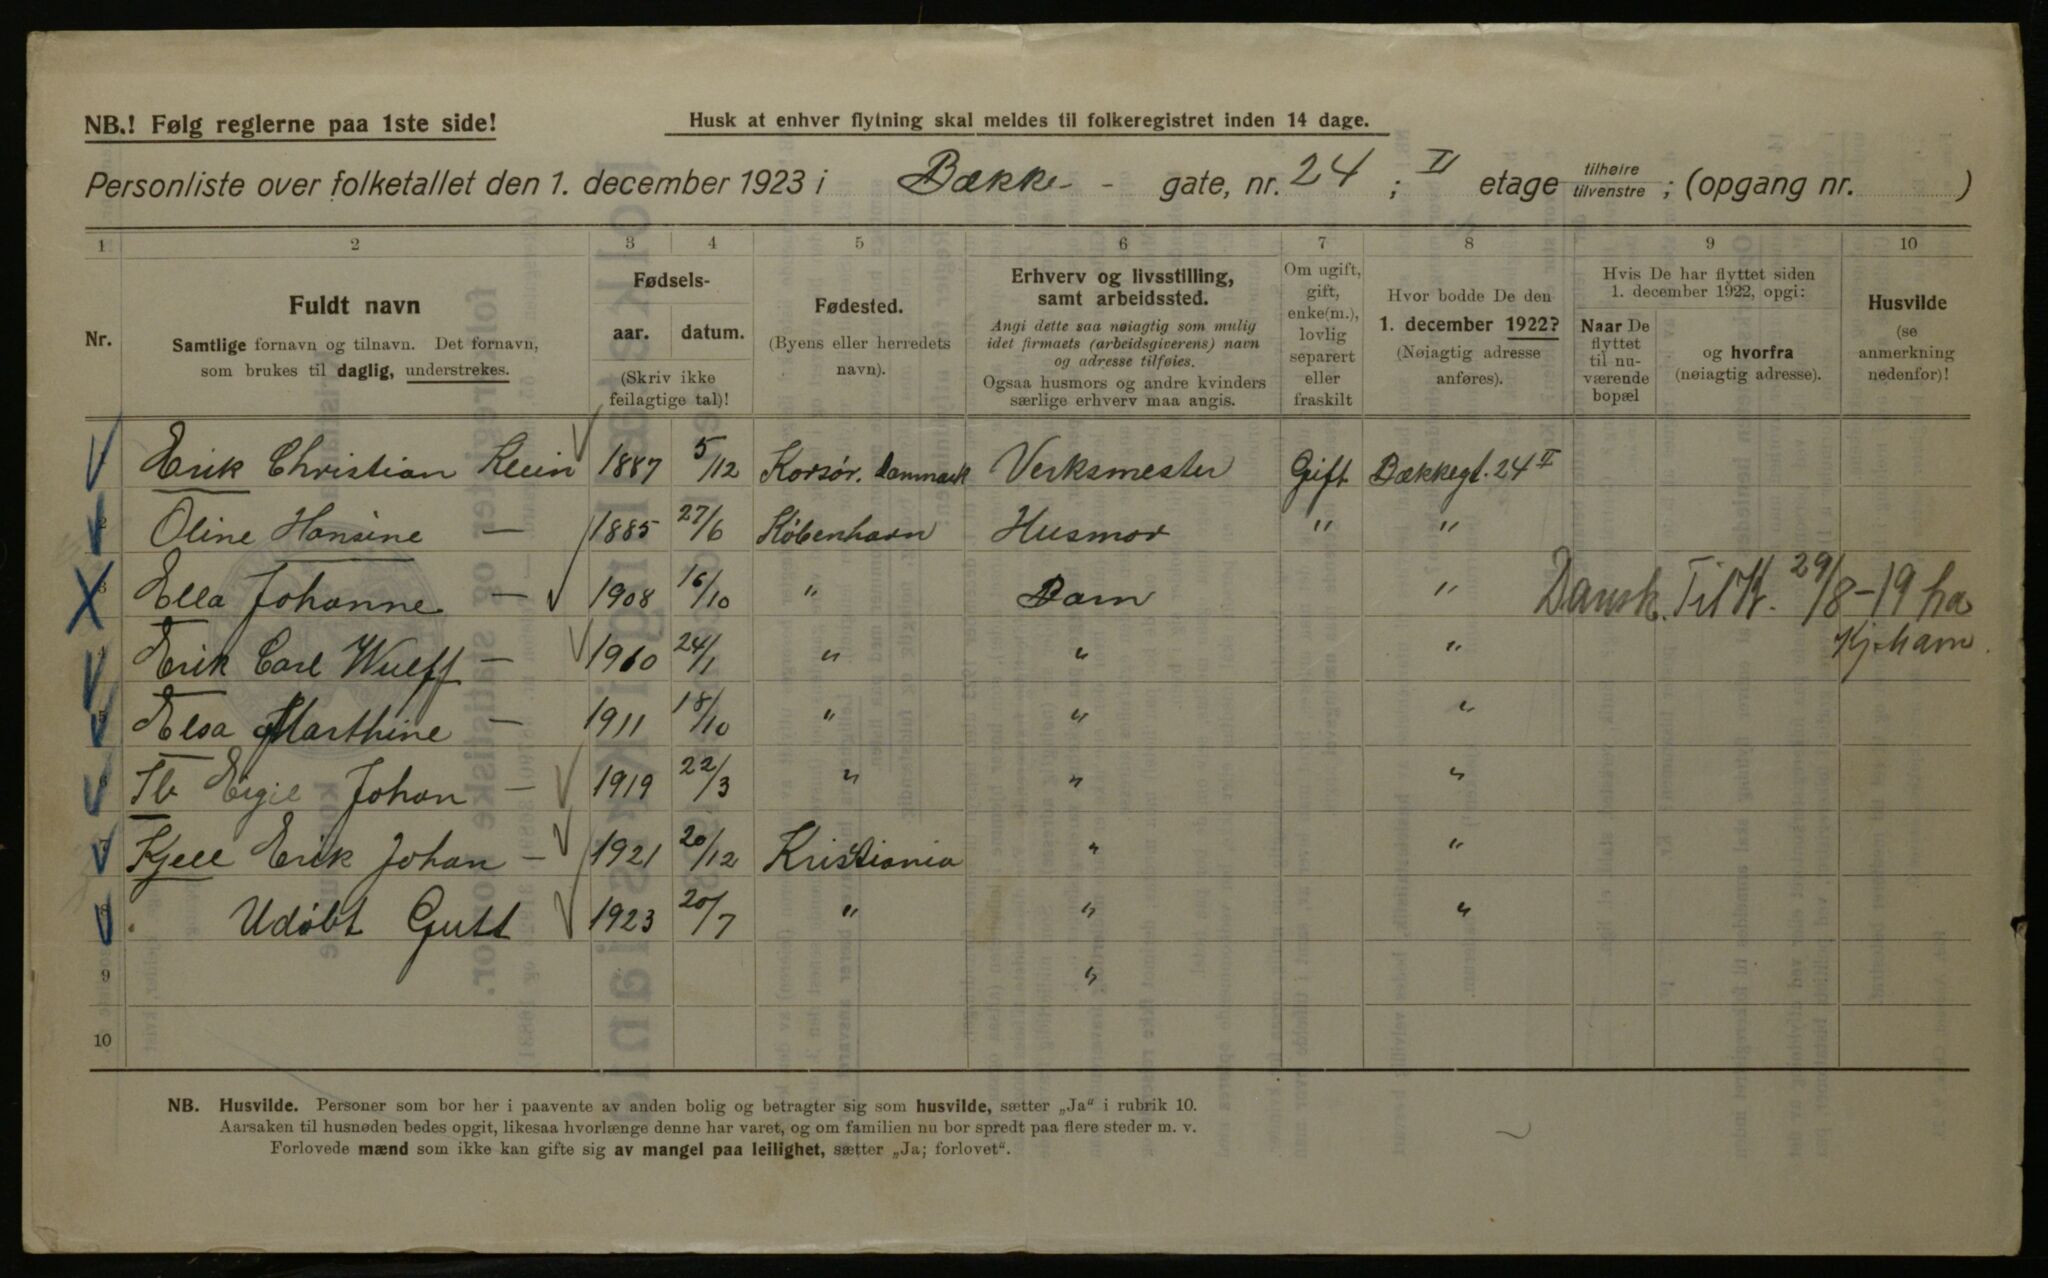 NB.! Følg reglerne paa 1ste side!
Husk at enhver flytning skal meldes til folkeregistret inden 14 dage.
Personliste over folketallet den 1. december 1923 i Bække- - gate, nr. 24 ; II etage tilhøire tilvenstre ; (opgang nr. )
1 2 3 4 5 6 7 8 9 10
Nr.
Fuldt navn
Samtlige fornavn og tilnavn. Det fornavn,
som brukes til daglig, understrekes.
Fødsels-
aar. datum.
(Skriv ikke
feilagtige tal)!
Fødested.
(Byens eller herredets
navn).
Erhverv og livsstilling,
samt arbeidssted.
Angi dette saa nøiagtig som mulig
idet firmaets (arbeidsgiverens) navn
og adresse tilføies.
Ogsaa husmors og andre kvinders
særlige erhverv maa angis.
Om ugift,
gift,
enke(m.),
lovlig
separert
eller
fraskilt
Hvor bodde De den
1. december 1922?
(Nøiagtig adresse
anføres).
Hvis De har flyttet siden
1. december 1922, opgi:
Naar De
flyttet
til nu-
værende
bopæl
og hvorfra
(nøiagtig adresse).
Husvilde
(se
anmerkning
nedenfor)!
Erik Christian Klein 1887 5/12 Korsør. Danmark Verksmester Gift Bækkegt. 24 II
2 Oline Hansine — 1885 27/6 København Husmor " "
3 Ella Johanne — 1908 16/10 " Barn " Dansk. Til K. 29/8-19 fra
Kjøhavn.
Erik Carl Wulff — 1910 24/1 " " "
5 Elsa Marthine — 1911 18/10 " " "
6 Ib Eigil Johan — 1919 22/3 " " "
7 Kjell Erik Johan — 1921 20/12 Kristiania " "
8 Udøbt Gutt 1923 20/7 " " "
9 "
10
NB. Husvilde. Personer som bor her i paavente av anden bolig og betragter sig som husvilde, sætter „Ja" i rubrik 10.
Aarsaken til husnøden bedes opgit, likesaa hvorlænge denne har varet, og om familien nu bor spredt paa flere steder m. v.
Forlovede mænd som ikke kan gifte sig av mangel paa leilighet, sætter „Ja; forlovet".